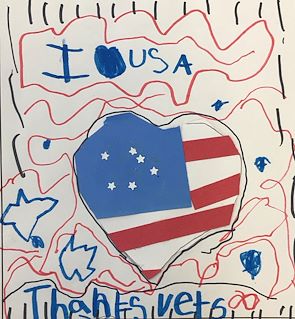 I ♥ USA
Thanks vets